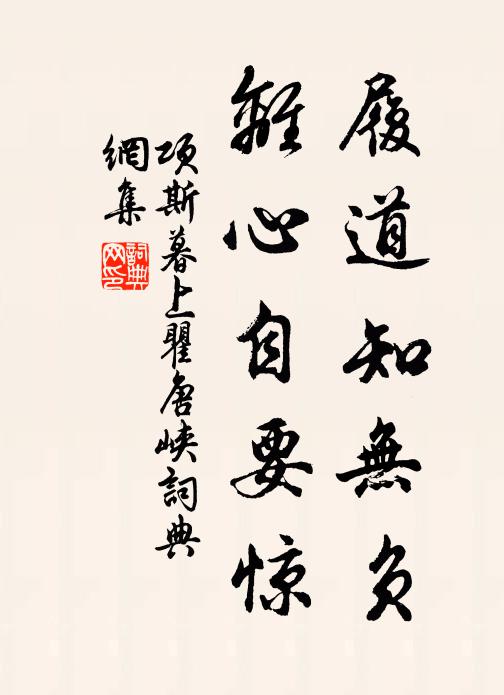 履道知無負
離心自要惊
項斯暮上瞿唐峽詞典
網集
詞典网印